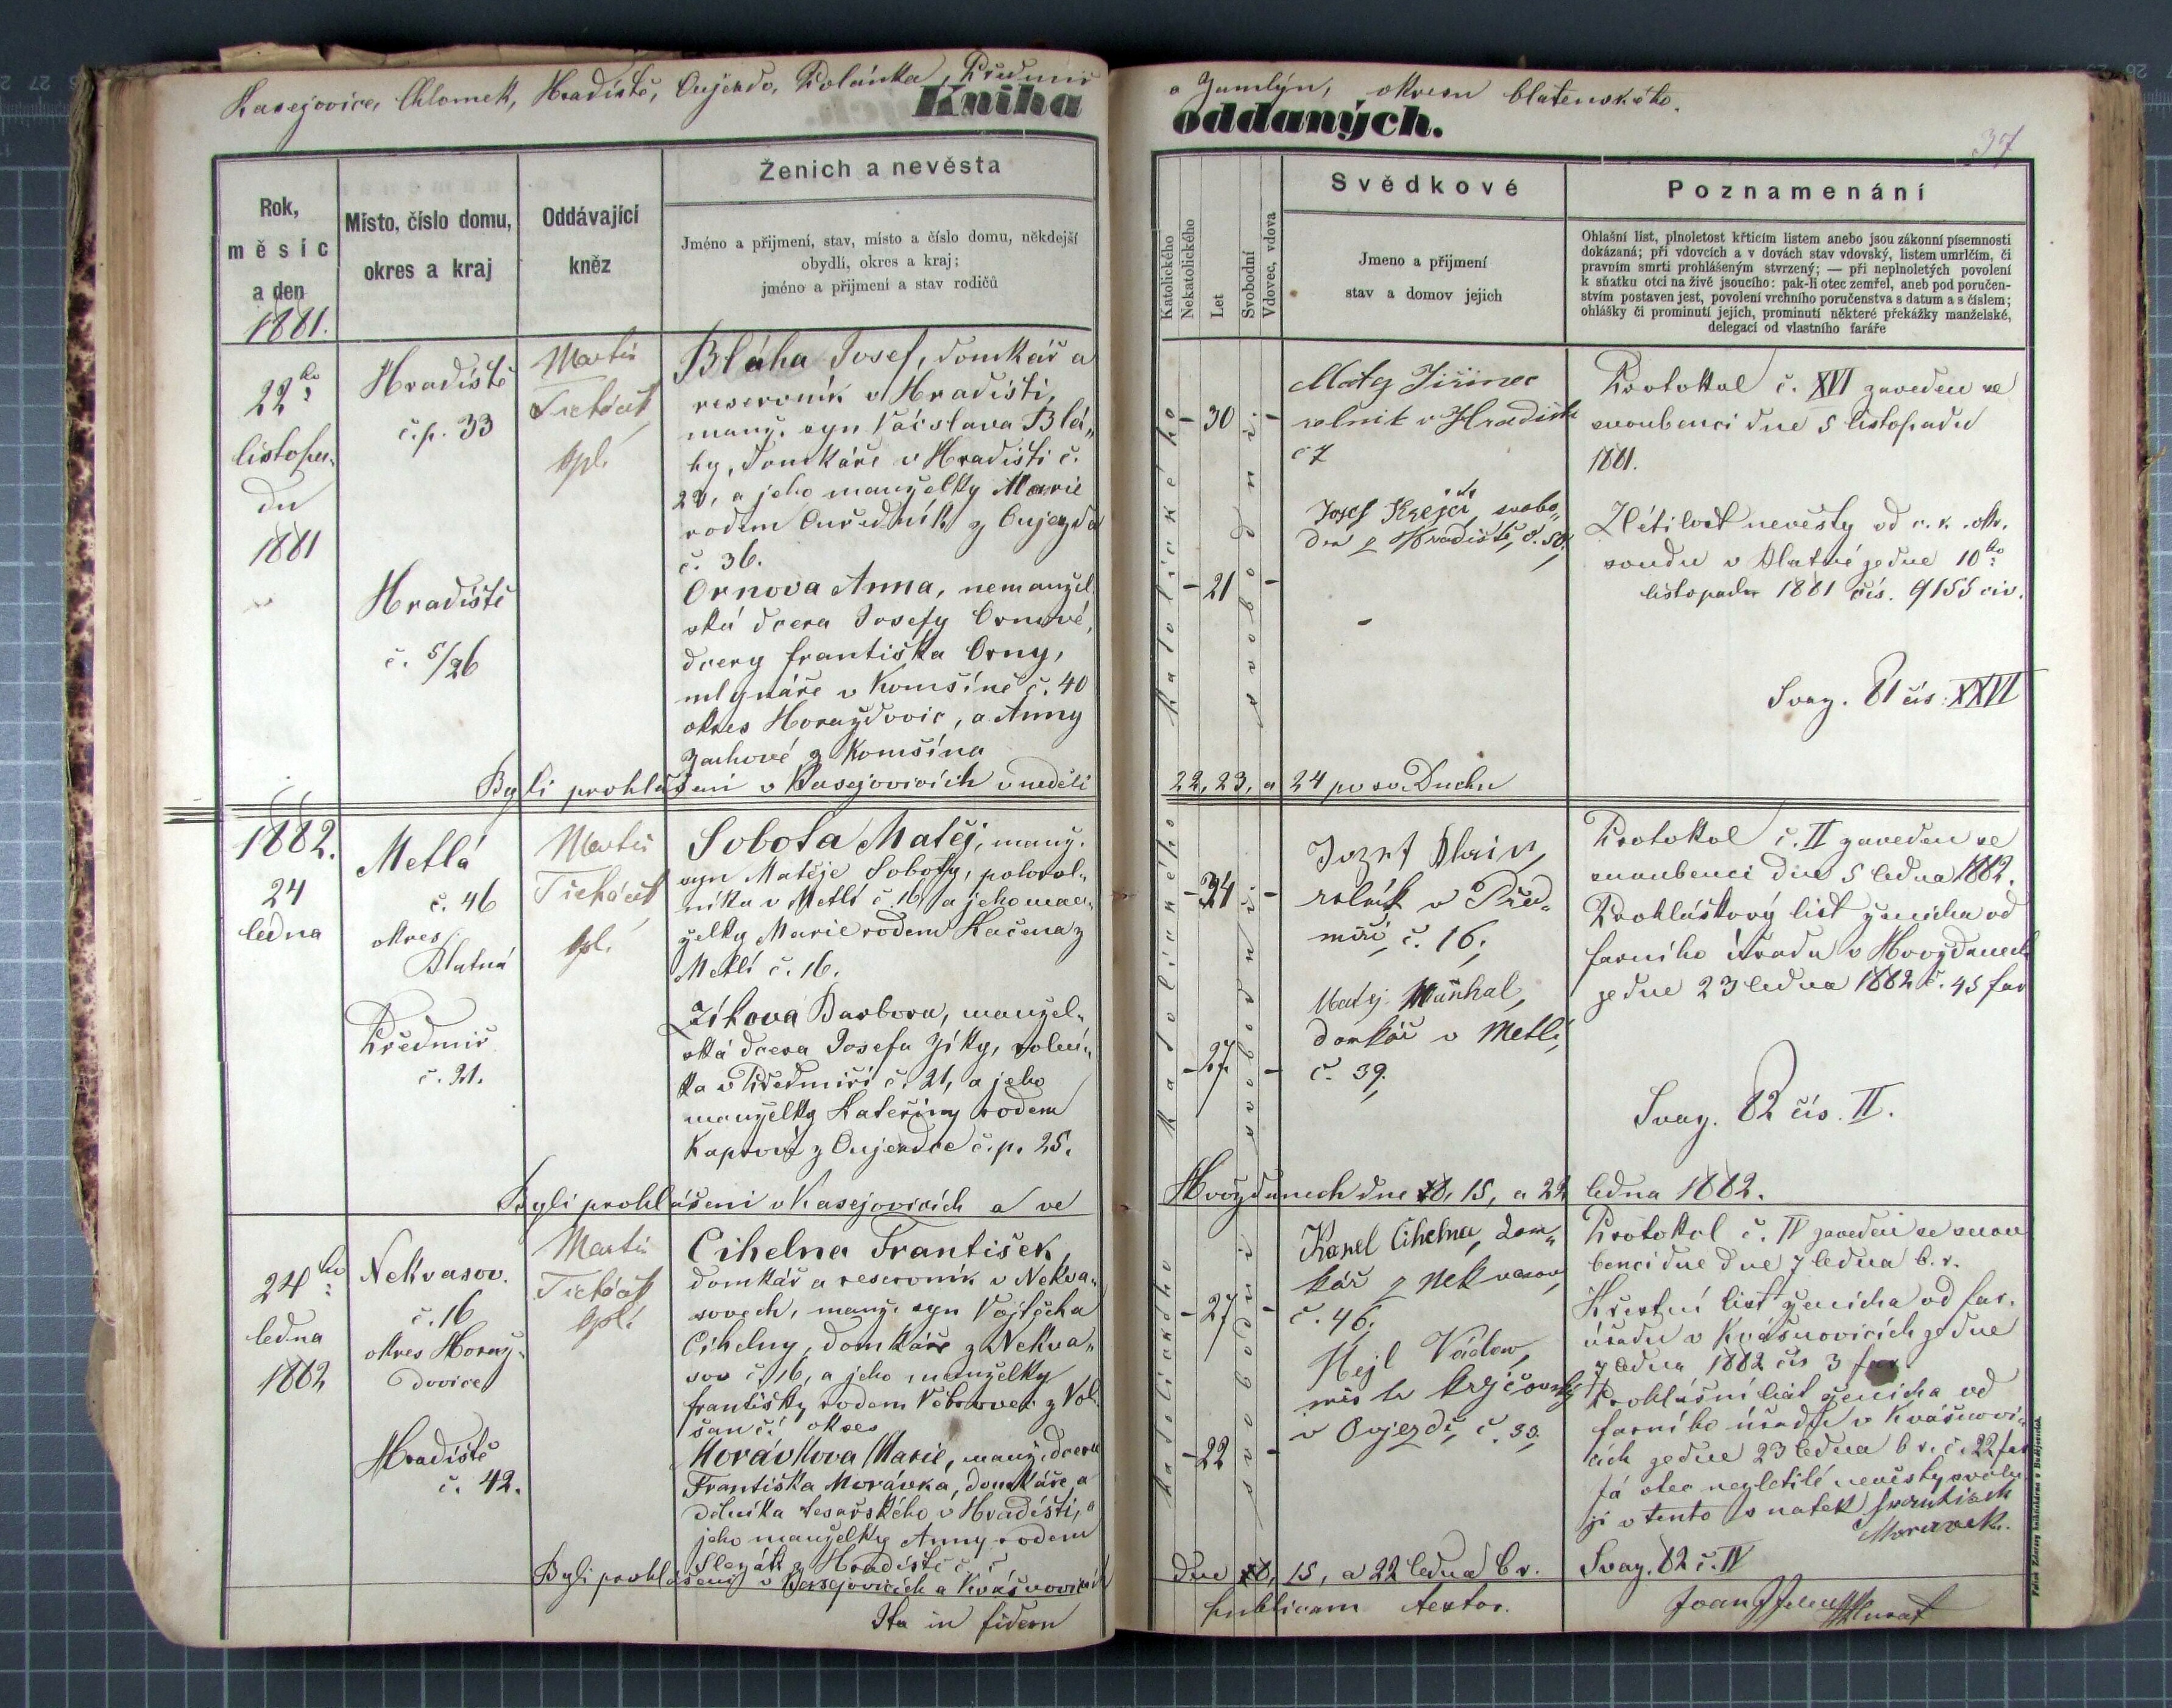 Kasejovice, Chlomek, Hradiště, Oujezdo, Polánka, Předmíř
Kniha
Rok,
měsíc
a den
1881.
Místo, číslo domu,
okres a kraj
Oddávající
kněz
Ženich a nevěsta
Jméno a přijmení, stav, místo a číslo domu, někdejší
obydlí, okres a kraj;
jméno a přijmení a stav rodičů
22ho
listopa-
du
1881
Hradiště
č.p. 33
Hradiště
č. 5/26
Martin
kpl.
Bláha Josef, domkář a
reservník v Hradišti,
manž. syn Václava Blá-
hy, domkáře v Hradišti č.
a jeho manželky Marie
rodem Ouředník z Oujezda
č. 36.
Ornova Anna, nemanžel.
ská dcera Josefy Ornové,
dcery Františka Orny,
mlynáře v Komšíně č. 40
okres Horažďovic, a Anny
z Komšína
Byli prohlášeni v Kasejovicích v neděli
1882.
24
ledna
Metlá
č. 46
okres
Blatná
Předmíř
č. 21.
Martin
kpl.
Sobota Matěj, manž.
syn Matěje Soboty, polorol-
níka v Metlí č. 16, a jeho man-
želky Marie rodem Kačena z
Metlí č. 16.
Zíkova Barbora, manžel-
ská dcera Josefa Zíky, rolní-
ka v Předmíři č. 21, a jeho
manželky Kateřiny rodem
z Oujezdce č.p. 25.
Byli prohlášeni v Kasejovicích a ve
24ho
ledna
1882
Nekvasov.
č. 16
okres Horaž-
dovice
Hradiště
č. 42.
Martin
kpl.
Cihelna František,
domkář a reservník v Nekva-
sovech, manž. syn Vojtěcha
Cihelny, domkáře z Nekva-
sov č. 16, a jeho manželky
Františky rodem z Vol-
šan č. okres
Morávkova Marie, manž. dcera
Františka Morávka, domkáře a
dělníka tesařského v Hradišti, a
jeho manželky Anny rodem
z Hradiště č.
Byli prohlášeni v Kasejovicích a Kvášňovicích
Ita in fidem
a Zámlýn, okresu blatenského.
oddaných.
37
Katolického
Nekatolického
Let
Svobodní
Vdovec, vdova
Svědkové
Jmeno a přijmení
stav a domov jejich
Poznamenání
Ohlašní list, plnoletost křticím listem anebo jsou zákonní písemnosti
dokázaná; při vdovcích a v dovách stav vdovský, listem umrlčím, či
pravním smrti prohlášeným stvrzený; — při neplnoletých povolení
k sňatku otci na živě jsoucího: pak-li otec zemřel, aneb pod poručen-
stvím postaven jest, povolení vrchního poručenstva s datum a s číslem;
ohlášky či prominutí jejich, prominutí některé překážky manželské,
delegací od vlastního faráře
katolického
30
21
svobodní
Matěj Jiřinec
rolník v Hradišti
č 7
Josef Krejčí, svobo-
den z Hradiště, č. 50.
Protokol č. XVI zaveden se
snoubenci dne 5 listopadu
1881.
Zletilost nevěsty od c. k. okr.
soudu v Blatné ze dne 10ho
listopadu 1881 čís. 9155 civ.
Svaz. 81 čís. XXVI
22, 23, a 24 po sv. Duchu
katolického
24
27
svobodní
rolník v Před-
míři č. 16,
Matěj
domkář v Metlí,
č. 39.
Protokol č. II zaveden se
snoubenci dne 5 ledna 1882.
Prohláškový list ženicha od
farního úřadu v Hvoždanech
ze dne 23 ledna 1882 č. 45 far
Svaz. 82 čís. II.
Hvožďanech dne 8, 15, a 22 ledna 1882.
katolického
27
22
svobodní
Karel Cihelna, dom-
kář z Nekvasov,
č. 46.
Hejl Václav,
mistr krejčovský
v Oujezdě, č. 33.
Protokol č. IV zaveden se snou
benci dne dne 7 ledna b. r.
Křestní list ženicha od far.
úřadu v Kvášňovicích ze dne
7 ledna 1882 čís 3 far.
Prohlášní list ženicha od
farního úřadu v Kvášňovi-
cích ze dne 23 ledna b r. č. 22 far
Já otec nezletilé nevěsty svolu
ji v tento snatek František
Moravek.
dne 8, 15, a 22 ledna b r.
Svaz. 82 č. IV
publicam testor.